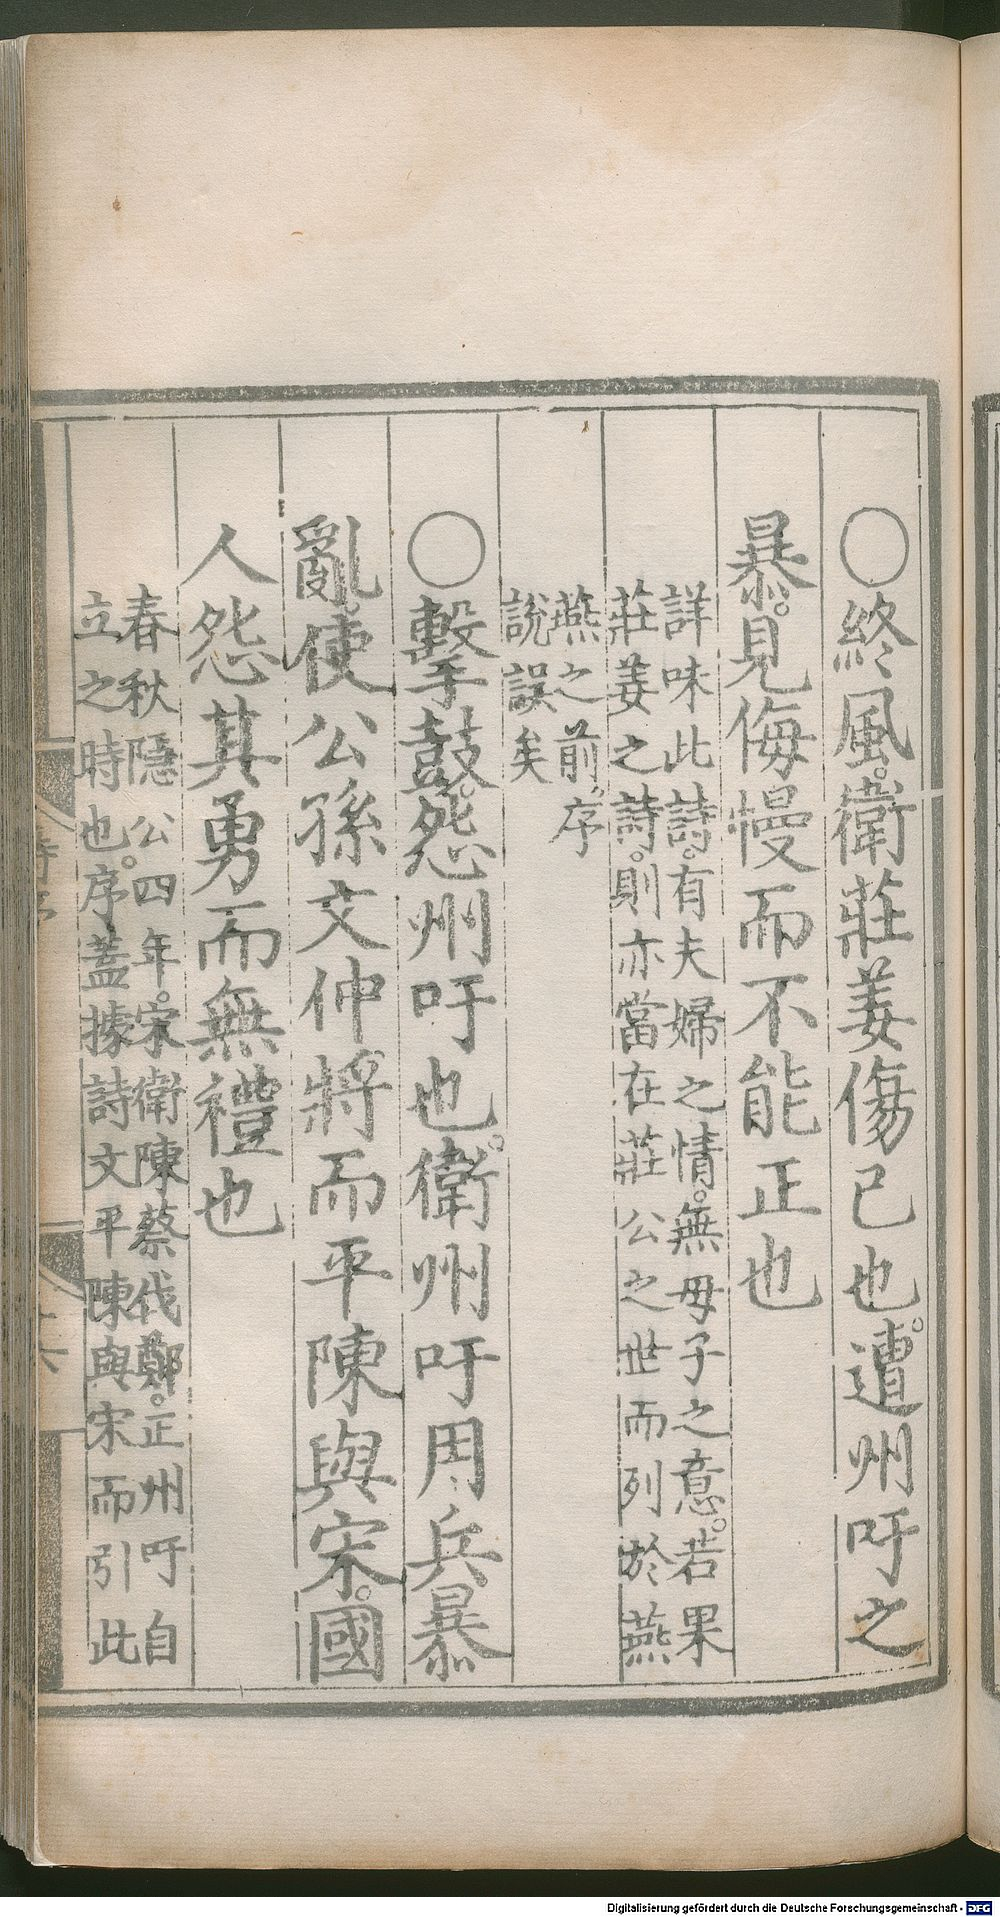 ○終風。衛莊姜傷已也。遭州吁之
暴。見侮慢而不能正也
詳味此詩。有夫婦之情。無母子之意。若果
莊姜之詩。則亦當在莊公之世而列於燕
燕之前。序
說誤矣
○擊鼓。怨州吁也。衛州吁用兵暴
亂。使公孫文仲將而平陳與宋。國
人怨其勇而無禮也
春秋隱公四年。宋衛陳蔡伐鄭。正州吁自
立之時也。序蓋據詩文平陳與宋而引此
Digitalisierung gefördert durch die Deutsche Forschungsgemeinschaft - DFG